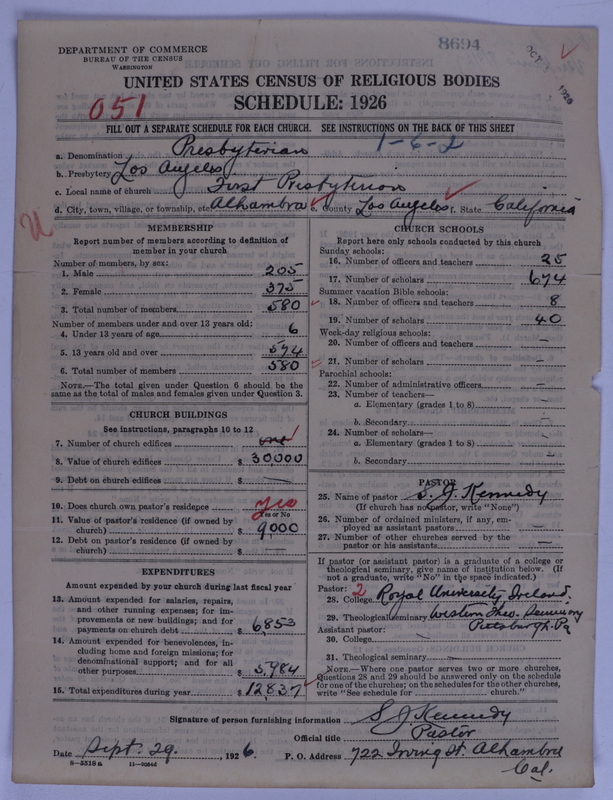 8694
OCT 1926
DEPARTMENT OF COMMERCE
BUREAU OF THE CENSUS
WASHINGTON
UNITED STATES CENSUS OF RELIGIOUS BODIES
SCHEDULE: 1926
051
FILL OUT A SEPARATE SCHEDULE FOR EACH CHURCH. SEE INSTRUCTIONS ON THE BACK OF THIS SHEET
1-6-2
a. Denomination Presbyterian
b. Presbytery Los Angeles
c. Local name of church First Presbyterian
d. City, town, village, or township, etc. Alhambra e. County Los Angeles f. State California
MEMBERSHIP
Report number of members according to definition of
member in your church
Number of members, by sex:
1. Male 205
2. Female 375
3. Total number of members 580
Number of members under and over 13 years old:
4. Under 13 years of age 6
5. 13 years old and over 574
6. Total number of members 580
NOTE.—The total given under Question 6 should be the
same as the total of males and females given under Question 3.
CHURCH BUILDINGS
See instructions, paragraphs 10 to 12
7. Number of church edifices one 1
8. Value of church edifices $ 30,000
9. Debt on church edifices $ —
10. Does church own pastor's residence yes
Yes or No
11. Value of pastor's residence (if owned by
church) $ 9,000
12. Debt on pastor's residence (if owned by
church) $ —
EXPENDITURES
Amount expended by your church during last fiscal year
13. Amount expended for salaries, repairs,
and other running expenses; for im-
provements or new buildings; and for
payments on church debt $ 6853
14. Amount expended for benevolences, in-
cluding home and foreign missions; for
denominational support; and for all
other purposes $ 5,984
15. Total expenditures during year $ 12,837
CHURCH SCHOOLS
Report here only schools conducted by this church
Sunday schools:
16. Number of officers and teachers 25
17. Number of scholars 674
Summer vacation Bible schools:
18. Number of officers and teachers 8
19. Number of scholars 40
Week-day religious schools:
20. Number of officers and teachers —
21. Number of scholars —
Parochial schools:
22. Number of administrative officers —
23. Number of teachers—
a. Elementary (grades 1 to 8) —
b. Secondary —
24. Number of scholars—
a. Elementary (grades 1 to 8) —
b. Secondary —
PASTOR
25. Name of pastor S. J. Kennedy
(If church has no pastor, write "None")
26. Number of ordained ministers, if any, em-
ployed as assistant pastors —
27. Number of other churches served by the
pastor or his assistants —
If pastor (or assistant pastor) is a graduate of a college or
theological seminary, give name of institution below. (If
not a graduate, write "No" in the space indicated.)
Pastor: 2
28. College Royal University, Ireland
29. Theological seminary Western Theo. Seminary
Pittsburgh Pa
Assistant pastor:
30. College —
31. Theological seminary —
NOTE.—Where one pastor serves two or more churches,
Questions 28 and 29 should be answered only on the schedule
for one of the churches; on the schedules for the other churches,
write "See schedule for church."
Signature of person furnishing information S J Kennedy
Official title Pastor
Date Sept. 29, 1926. P. O. Address 722 Irving St. Alhambra
Cal.
8-5518 a